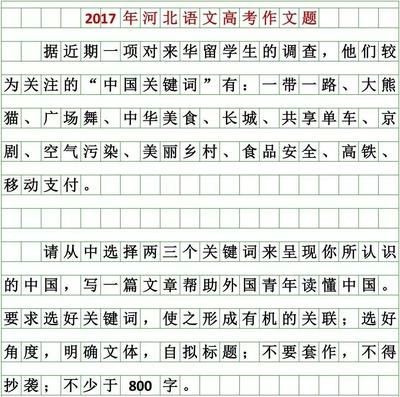 2017年河北语文高考作文题
据近期一项对来华留学生的调查，他们较
为关注的“中国关键词”有：一带一路、大熊
猫、广场舞、中华美食、长城、共享单车、京
剧、空气污染、美丽乡村、食品安全、高铁、
移动支付。
请从中选择两三个关键词来呈现你所认识
的中国，写一篇文章帮助外国青年读懂中国。
要求选好关键词，使之形成有机的关联；选好
角度，明确文体，自拟标题；不要套作，不得
抄袭；不少于 800 字。